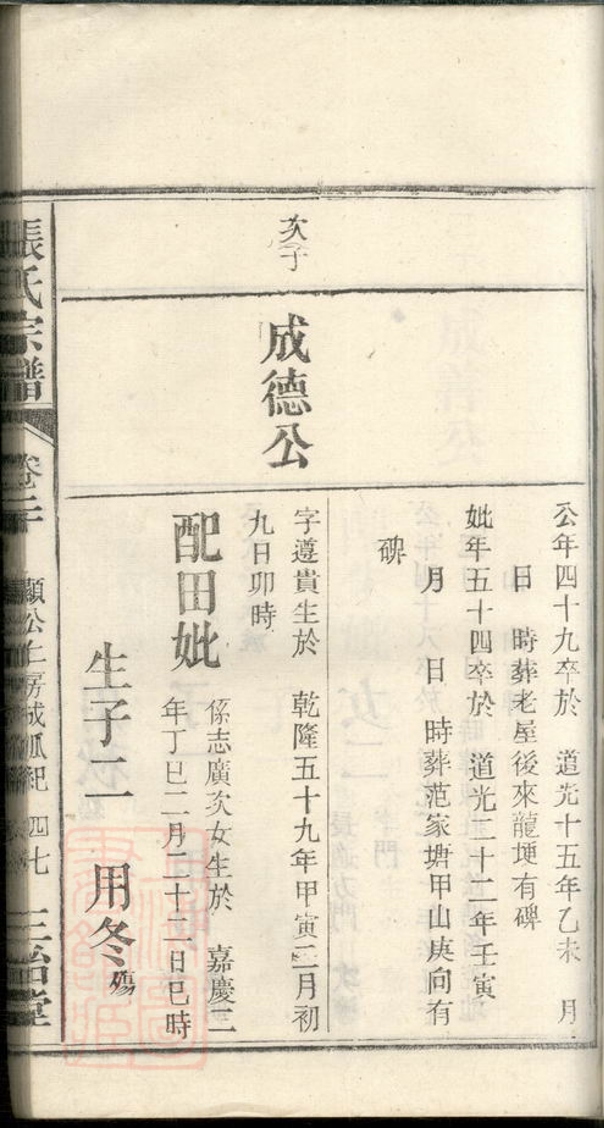 次子
成德公
公年四十九卒於　道光十五年乙未　月
日　時葬老屋後來龍埂有碑
妣年五十四卒於　道光二十二年壬寅
月　日　時葬范家塘甲山庚向有
碑
字遵貴生於　乾隆五十九年甲寅二月初
九日卯時
配田妣
係志廣次女生於　嘉慶二
年丁巳二月二十二日巳時
生子二
用冬殤
張氏宗譜
卷二
顯公仁房成派紀　四七